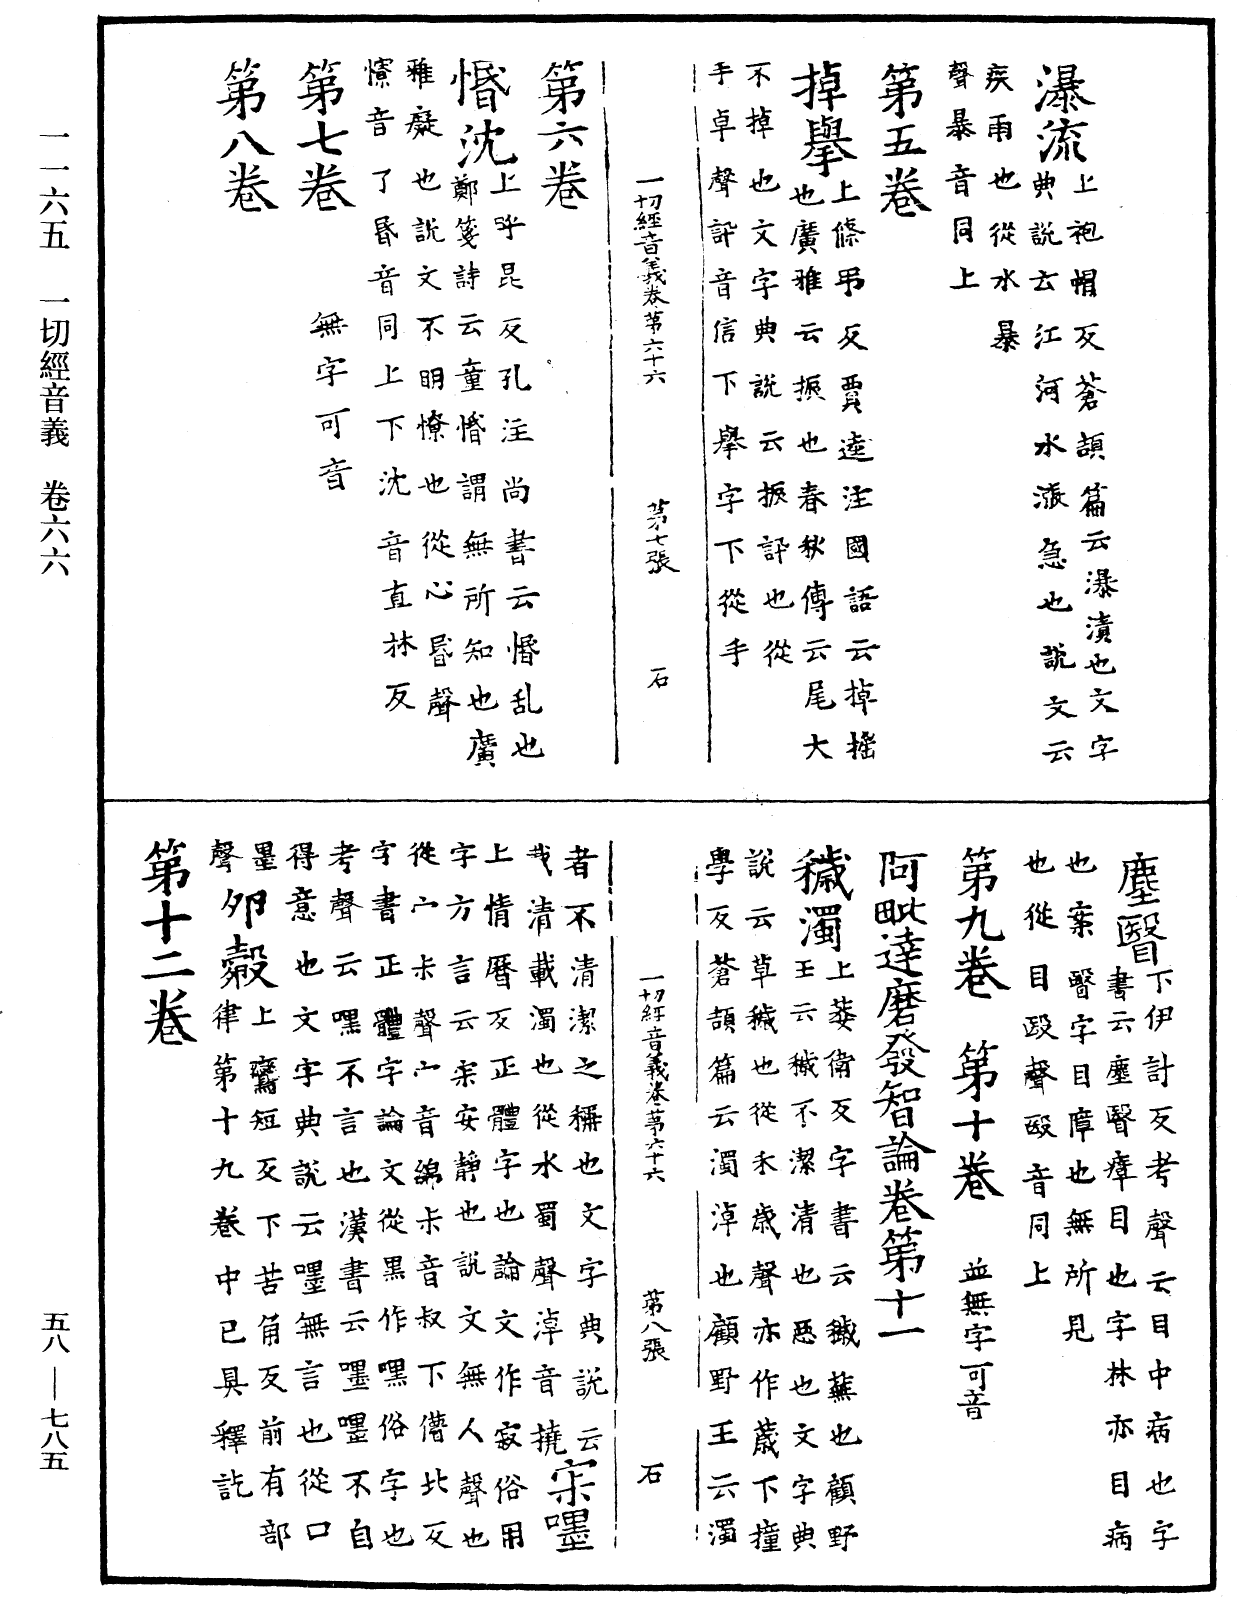 瀑流上袍帽反蒼頡篇云瀑漬也文字
典說云江河水漲急也說文云
疾雨也從水暴
聲暴音同上
第五卷
掉擧上條弔反賈逵注國語云掉搖
也廣雅云振也春秋傳云尾大
不掉也文字典說云振訊也從
手卓聲訊音信下擧字下從手
一切經音義卷第六十六 第七張 石
第六卷
惛沈上呼昆反孔注尚書云惛乱也
鄭箋詩云童惛謂無所知也廣
雅癡也說文不明憭也從心昬聲
憭音了昬音同上下沈音直林反
第七卷 無字可音
第八卷
塵瞖下伊計反考聲云目中病也字
書云塵瞖瘴目也字林亦目病
也案瞖字目障也無所見
也從目殹聲殹音同上
第九卷 第十卷 並無字可音
阿毗達磨發智論卷第十一
穢濁上薉衛反字書云穢蕪也顧野
王云穢不潔清也惡也文字典
說云草穢也從禾歲聲亦作薉下撞
學反蒼頡篇云濁淖也顧野王云濁
一切經音義卷第六十六 第八張 石
者不清潔之稱也文字典說云
我清載濁也從水蜀聲淖音撓 宋嚜
上情曆反正體字也論文作寂俗用
字方言云宋安靜也說文無人聲也
從宀尗聲宀音綿尗音叔下僭北反
字書正體字論文從黑作嘿俗字也
考聲云嘿不言也漢書云嚜嚜不自
得意也文字典說云嚜無言也從口
墨聲 卵㲉上鸞短反下苦角反前有部
律第十九卷中已具釋訖
第十二卷
一一六五 一切經音義 卷六六
五八—七八五